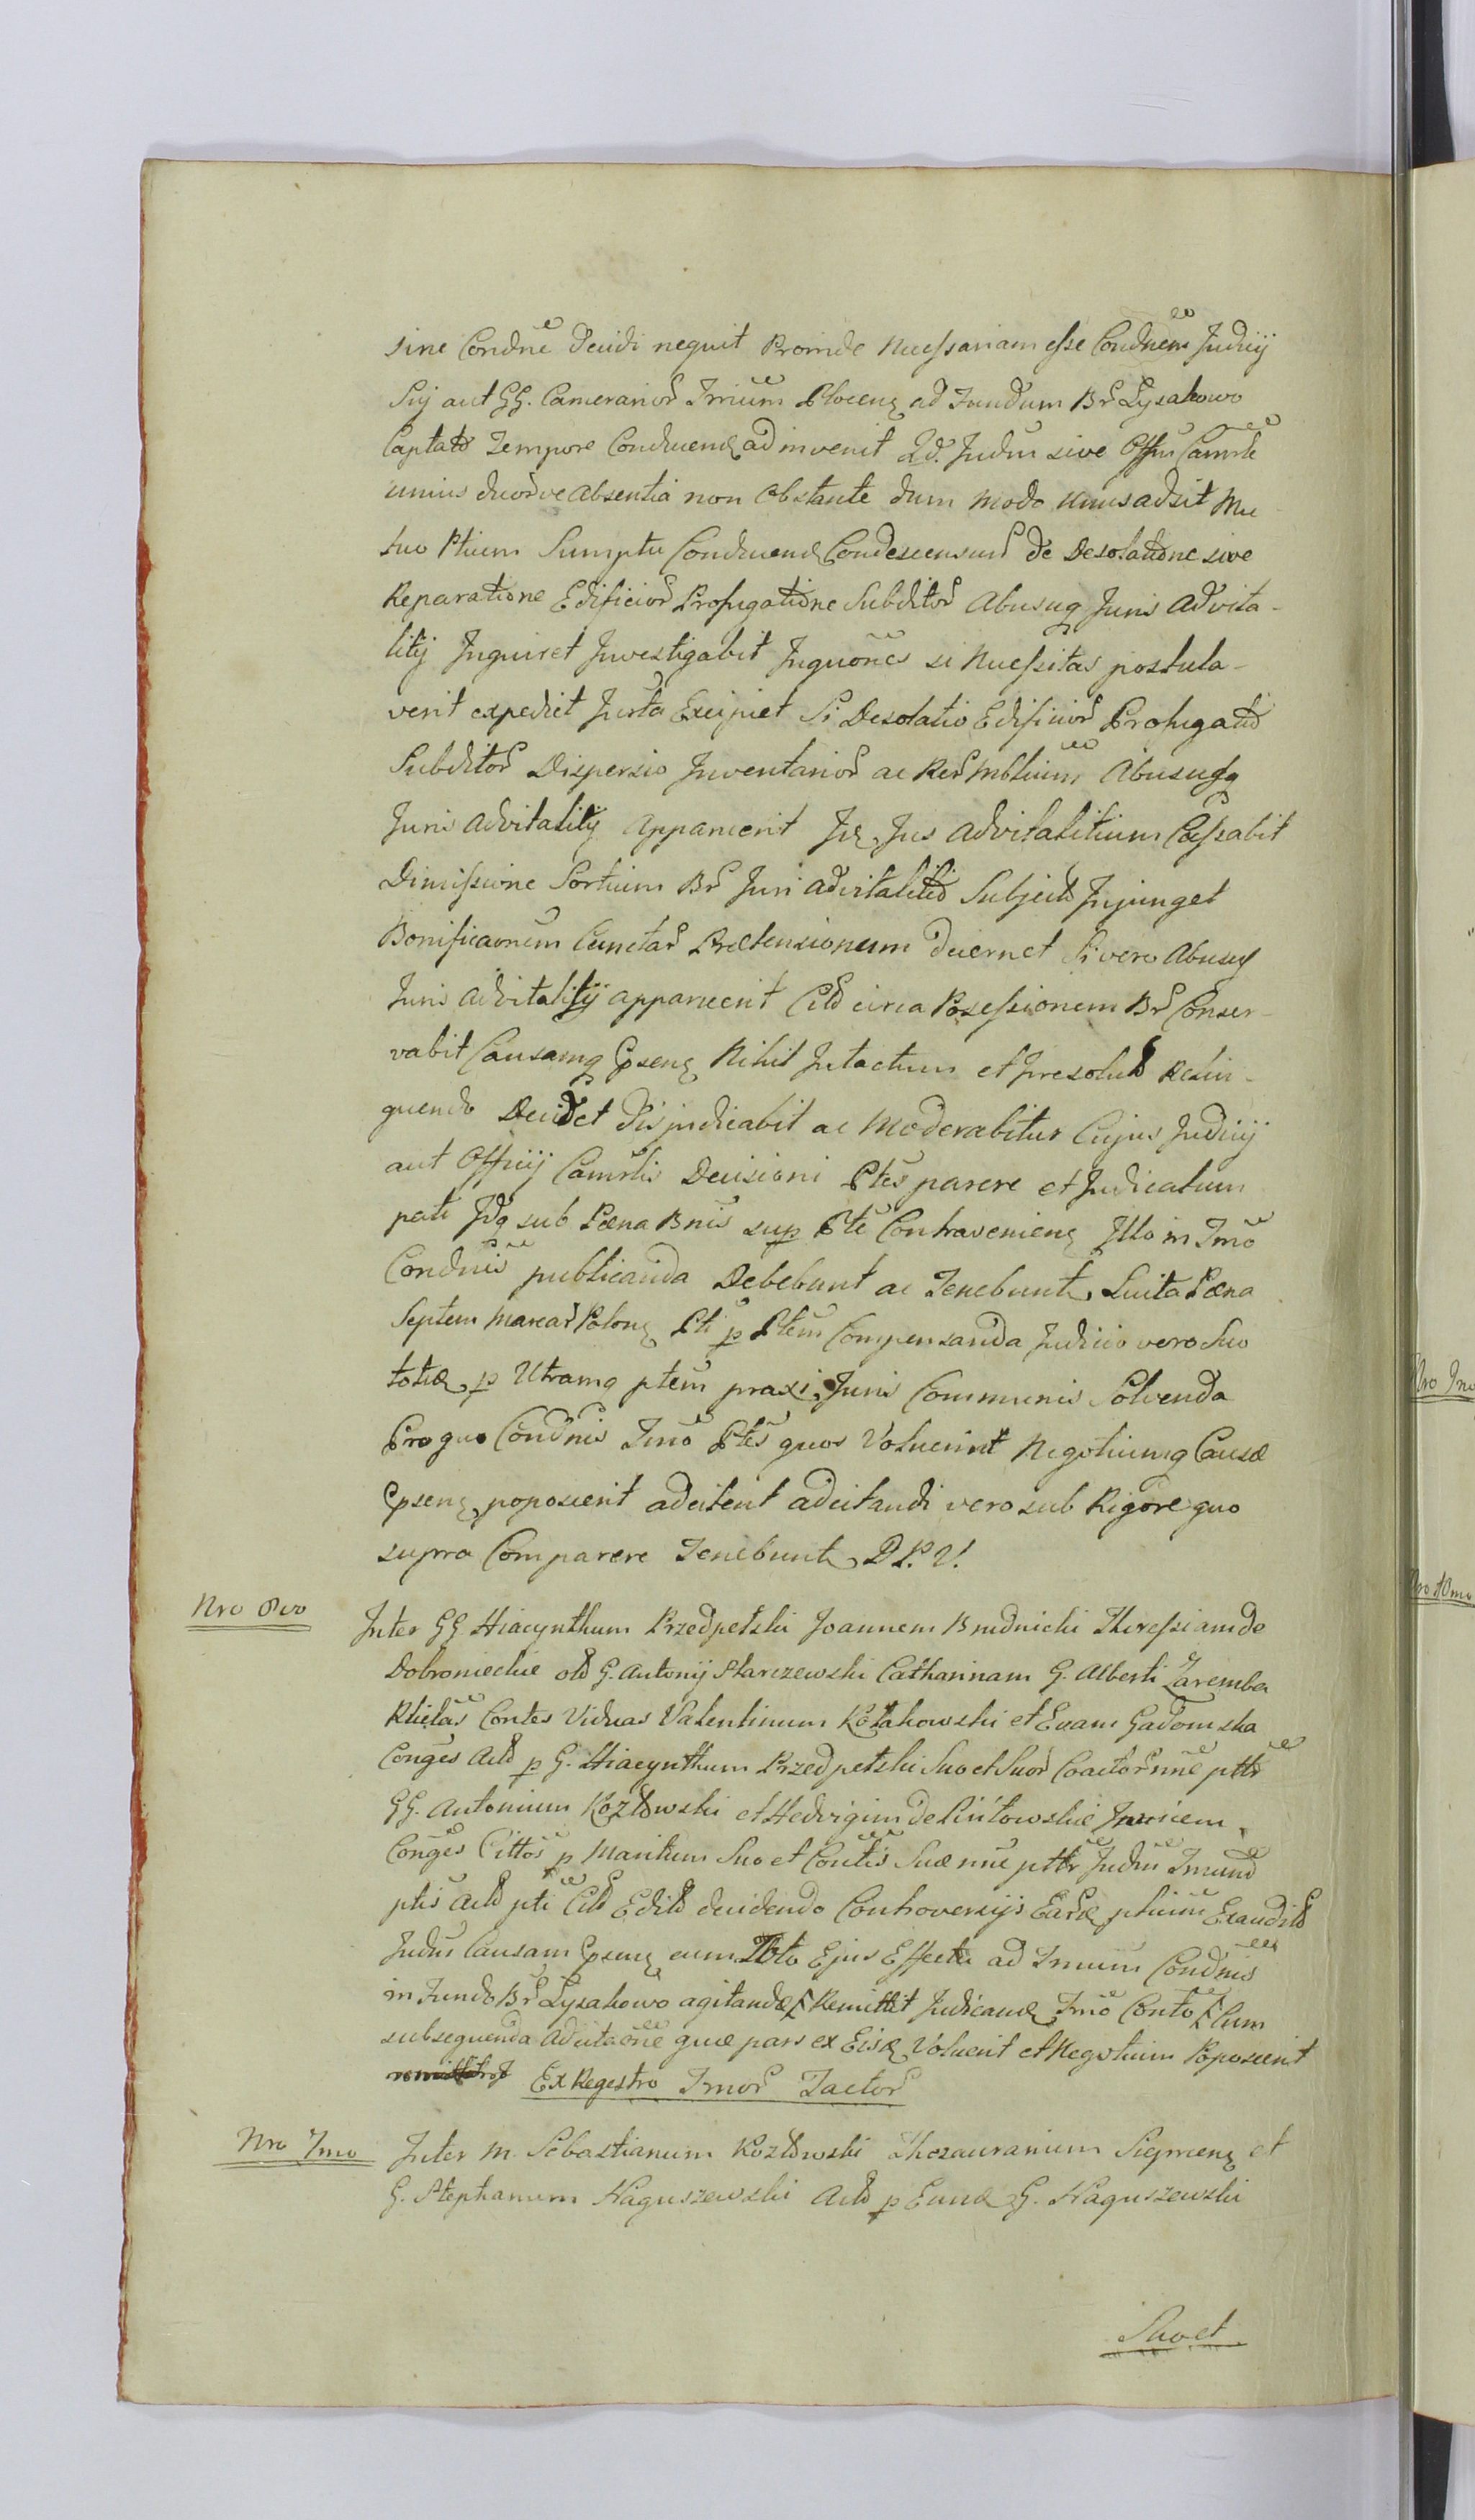 sine Condne decidi nequit Proinde Necessariam esse Condnem Judicij
Sij aut GG. Camerarior Trium Plocen ad Fundum Br Lysakowo
Captato Tempore Conducend adinvenit Qd. Judm sive Offm Camrle
unius duorve absentia non obstante dum modo unus adsit Mu-
tuo Ptium Sumptu Conducend Condescensurd de Desolatione sive
Reparatione Edificior Profugatione Subditor Abusuq Juris Advita-
litij Inquiret Investigabit Inquones si Necessitas postula-
verit expediet Jurta Excipiet Si Desolatio Edificior Profugatio
Subditor Dispersio Inventarior ac Rer Mblium Abususq
Juris Advitalitij Apparuerit Id Jus Advitalitium Cassabit
Dimissione Sortium Br Juri advitalitio Subject Injunget
Bonificaonem Cunctar Praetensionum decernet Si vero Abusus
Juris Advitalitij apparuerit Citd circa Possessionem Br Conser-
vabit Causamq Psen Nihil Intactum et Iresolutd Relin-
quendo Decidet Disjudicabit ac Moderabitur Cujus Judicij
aut Officij Camrlis Decisioni Ptes parere et Judicatum
pati Idq sub Poena Bnis sup Pte Contravenien Illo in Tmo
Condnis publicanda Debebunt ac Tenebunt, Luita Poena
Septem Marcar Polon Pti p Ptem Compensanda Judicio vero Suo
totid p Utramq ptem praxi Juris Communis Solvenda
Pro quo Condnis Tmo Ptes quos Voluerint Negotiumq Causae
Psen, poposcerit adcitent adcitandi vero sub Rigore quo
supra Comparere Tenebunt, D.P.V.
Nro 8vo
Inter GG Hiacynthum Przedpełski Joannem Brudnicki Theressiam de
Dobronieckie olo G. Antonij Starczewski Catharinam G. Alberti Zaremba
Rlictas Contes Viduas Valentinum Kołakowski et Evam Gadomska
Conges Actd p G. Hiacynthum Przedpełski Suo et Suor Coactor nne pttr
GG. Antonium Kozłowski et Hedvigim de Piutowskie Invicem
Conges Cittos p Maritum Suo et Contis Suae nne pttr Judm Tmund
ptis Actd pti Citd Editd decidendo Controversijs Eard ptium Exauditd
Judm Causam Psen cum Toto Ejus Effectu ad Tmum Condnis
in Fundo Br Lysakowo agitandae Remittit Judicand Tmo Conto Cum
subsequenda Adcitaone quae pars ex Eisd Voluerit et Negotium Poposcerit
Ex Regestro Tmor Tactor
Nro 7mo
Inter M. Sebastianum Kozłowski Thesaurarium Sieprcen et
G. Stephanum Naguszewski Actd p Eund G. Naguszewski
Suo et